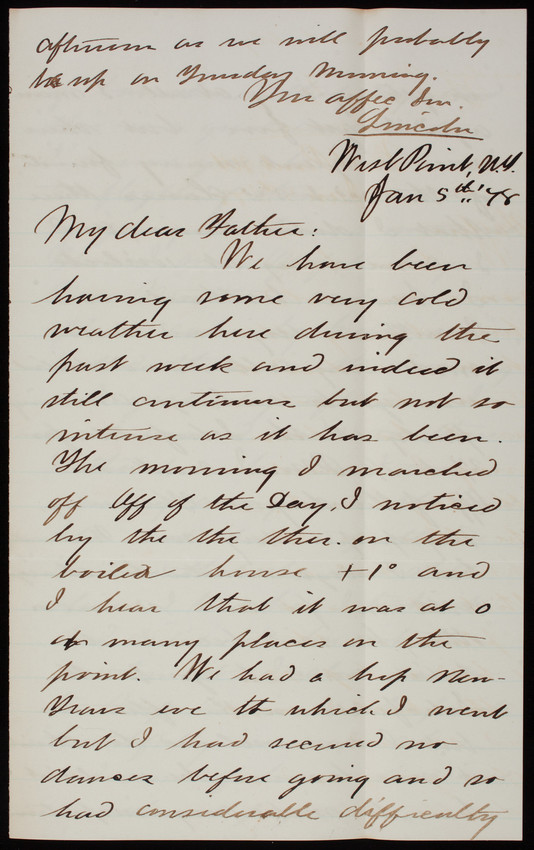 afternoon as we will probably
be up on Tuesday Morning.
Your affec Son.
Lincoln
West Point, N.Y.
Jan 5th '78
My dear Father:
We have been
having some very cold
weather here during the
past week and indeed it
still continues but not so
intense as it has been.
The morning I marched
off Off of the Day, I noticed
by the the ther. on the
boiler house +1° and
I hear that it was at 0
at many places on the
point. We had a hop New-
Years eve to which I went
but I had secured no
dances before going and so
had considerable difficulty